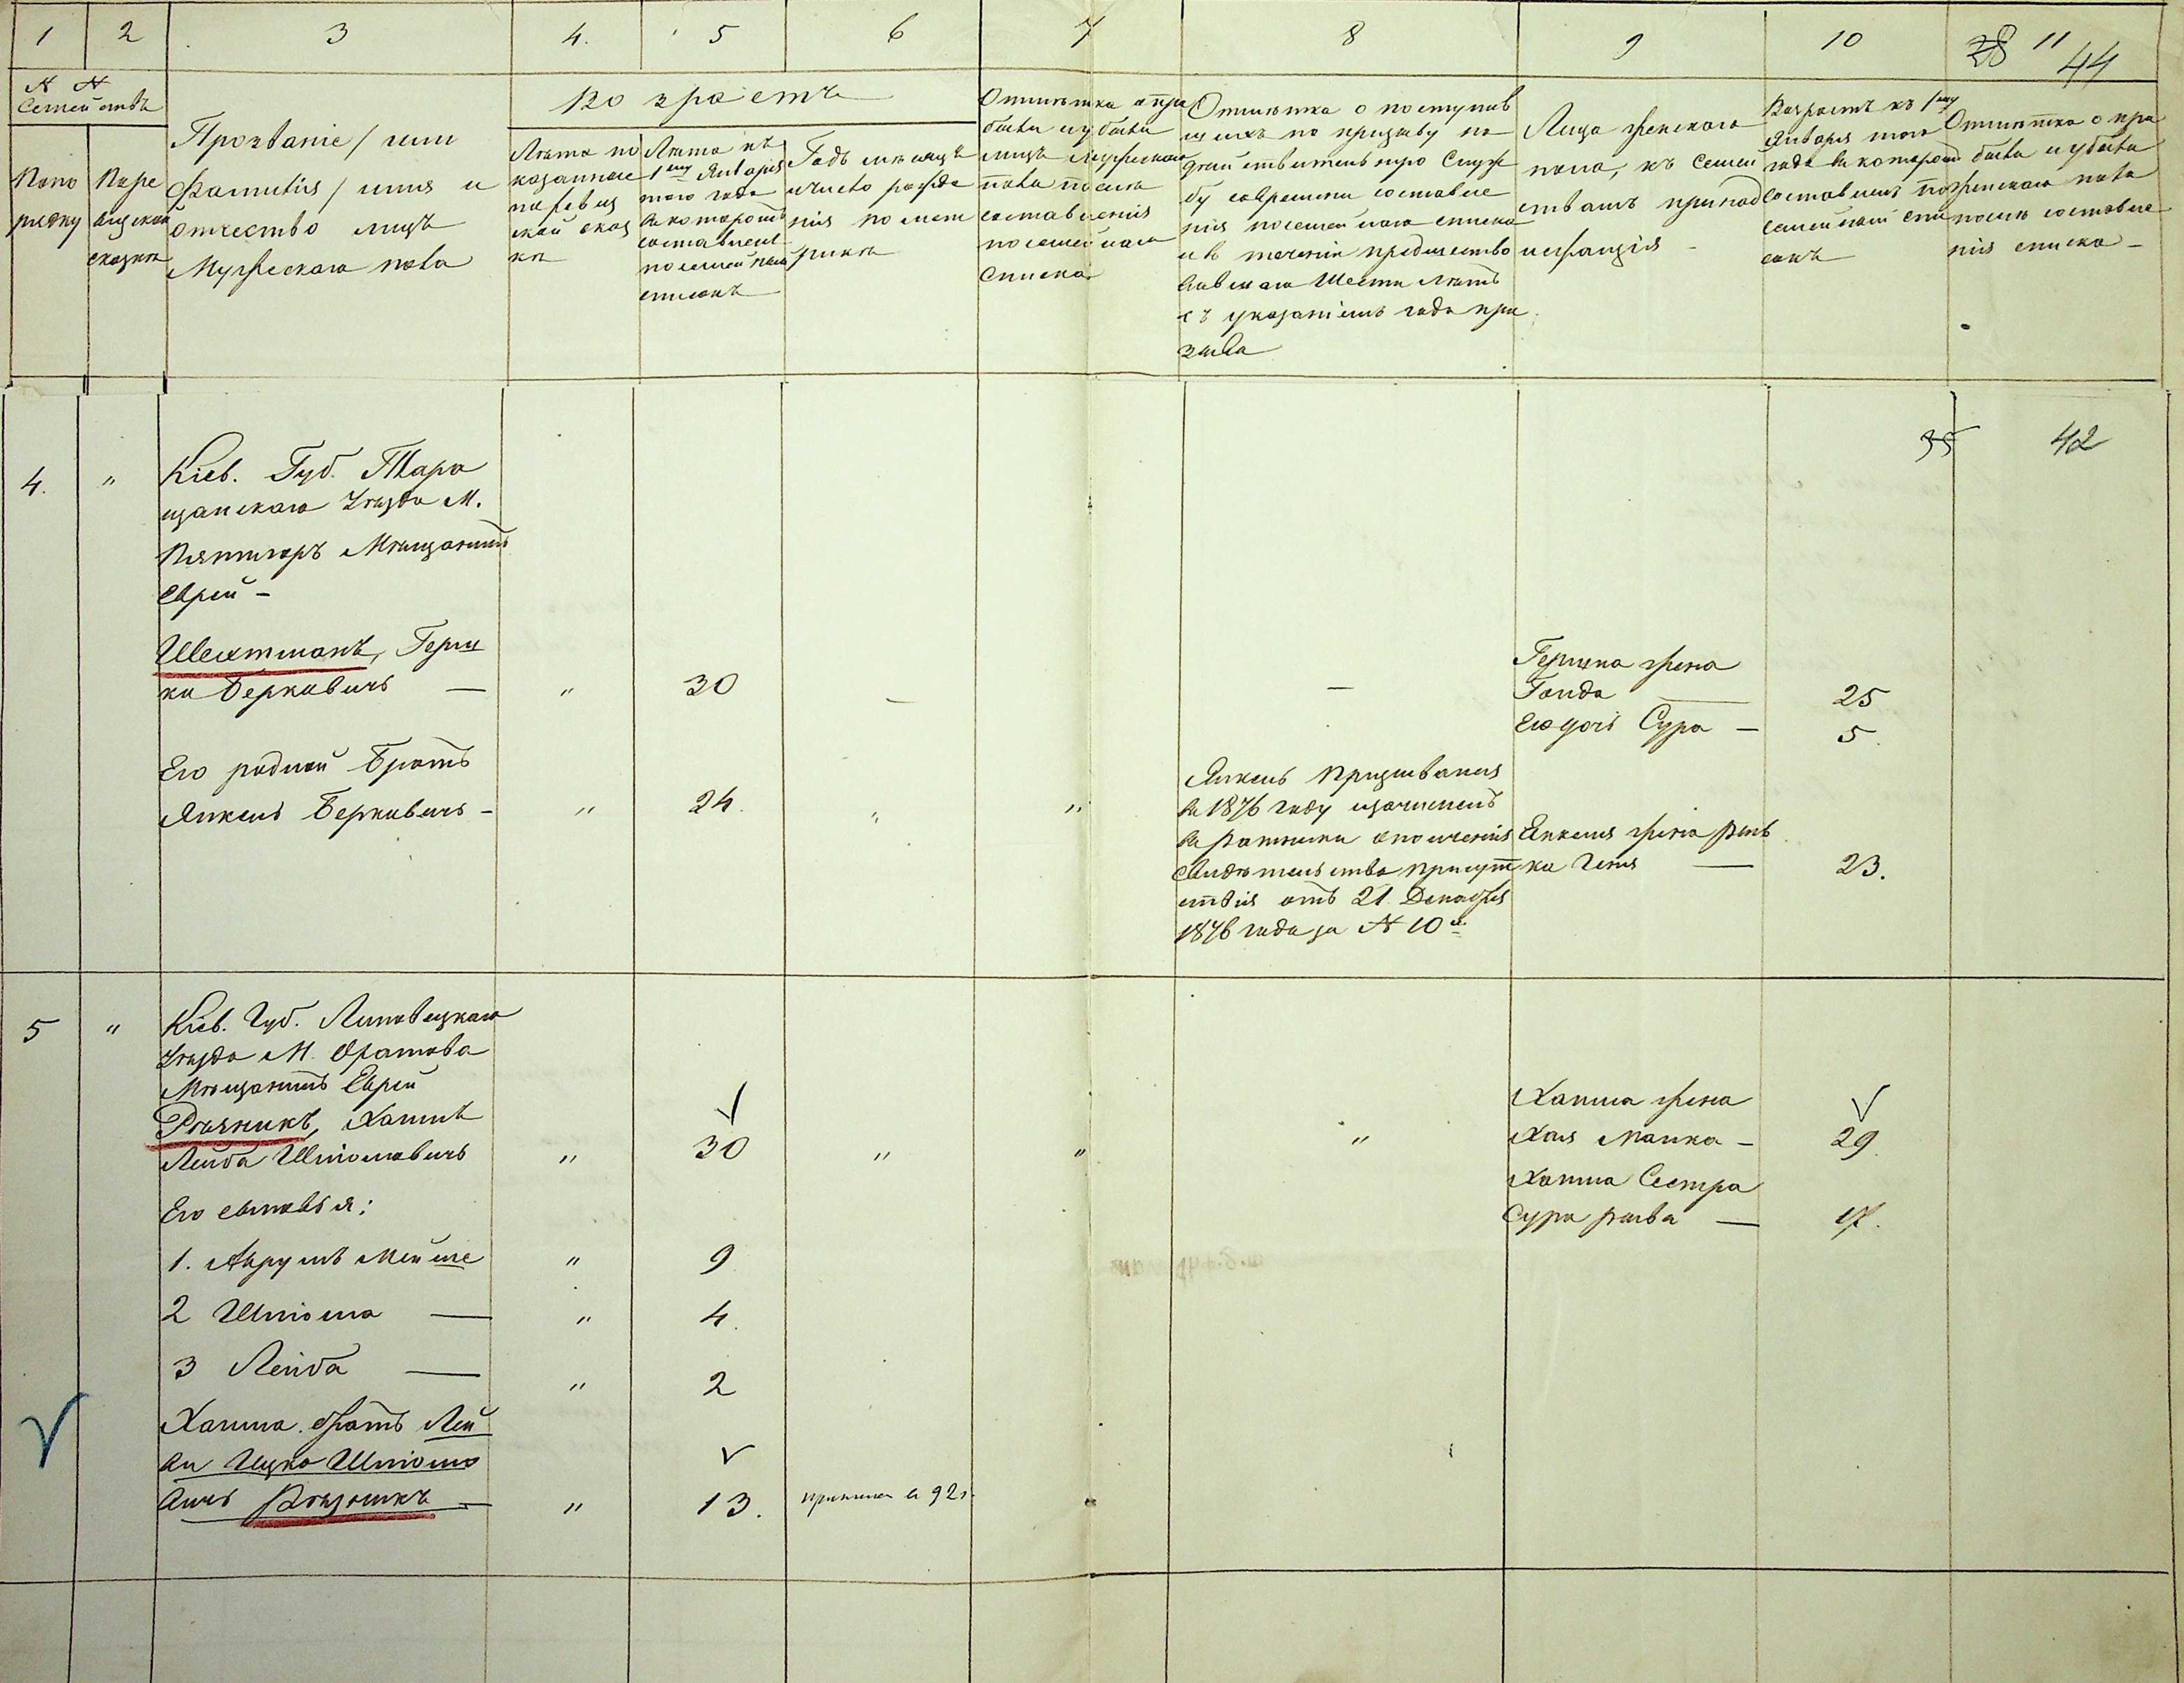 1
2
3
4.
5
6
7
8
9
10
11
28
44
N N
Семействъ
По по
рядку
По ре
визской
сказкѣ
Прозваніе / или
Фамилія / имя и
отчество лицъ
Мужескаго пола
Возрастъ
Лѣта по
казанные
по ревиз
ской сказ
кѣ
Лѣта къ
1му Января
того года
въ которомъ
составленъ
посемейный
списокъ
Годъ мѣсяцъ
и число рожде
нія по мет
рикѣ
Отмѣтка о при
были и убыли
лицъ мужескаго
пола послѣ
составленія
посемейнаго
списка
Отмѣтка о поступив
шихъ по призыву на
дѣйствительную служ
бу со времени составле
нія посемейнаго списка
и въ теченіи предшество
вавшаго Шести лѣтъ
съ указаніемъ года при
зыва
Лица женскаго
пола, къ семей
ствамъ принад
лежащія -
Возрастъ къ 1му
Января того
года въ которомъ
составленъ по
семейный спи
сокъ
Отмѣтка о при
были и убыли
женскаго пола
послѣ составле
нія списка -
35
42
4.
"
Кіев. Губ. Тара
щанскаго Уѣзда М.
Пятигоръ Мѣщанинъ
Еврей -
Шехтманъ, Герш
ко Берковичъ —
"
30
—
—
Гершка жена
Гонда
25
Его дочь Сура -
5.
Его родной братъ
Янкель Берковичъ -
"
24.
"
"
Янкель призывался
въ 1876 году и зачисленъ
въ ратники ополченія
Свидѣтельство присут
ствія отъ 21 Декабря
1876 года за N 10 й
Янкеля жена Рив
ка Геня —
23.
5
"
Кіев. Губ. Липовецкаго
Уѣзда М. Оратова
Мѣщанинъ Еврей
Рѣзникъ, Хаимъ
Лейба Шліомовичъ
"
30
"
"
"
Хаима жена
Хая Малка -
29.
Хаима Сестра
Сура Рыва —
17.
Его сыновья:
1. Аврумъ Мейше
"
9
2 Шліома —
"
4.
3 Лейба —
"
2
Хаима братъ Лей
ви Ицко Шліомо
вичъ Рѣзникъ —
"
13.
принятъ въ 92 г.